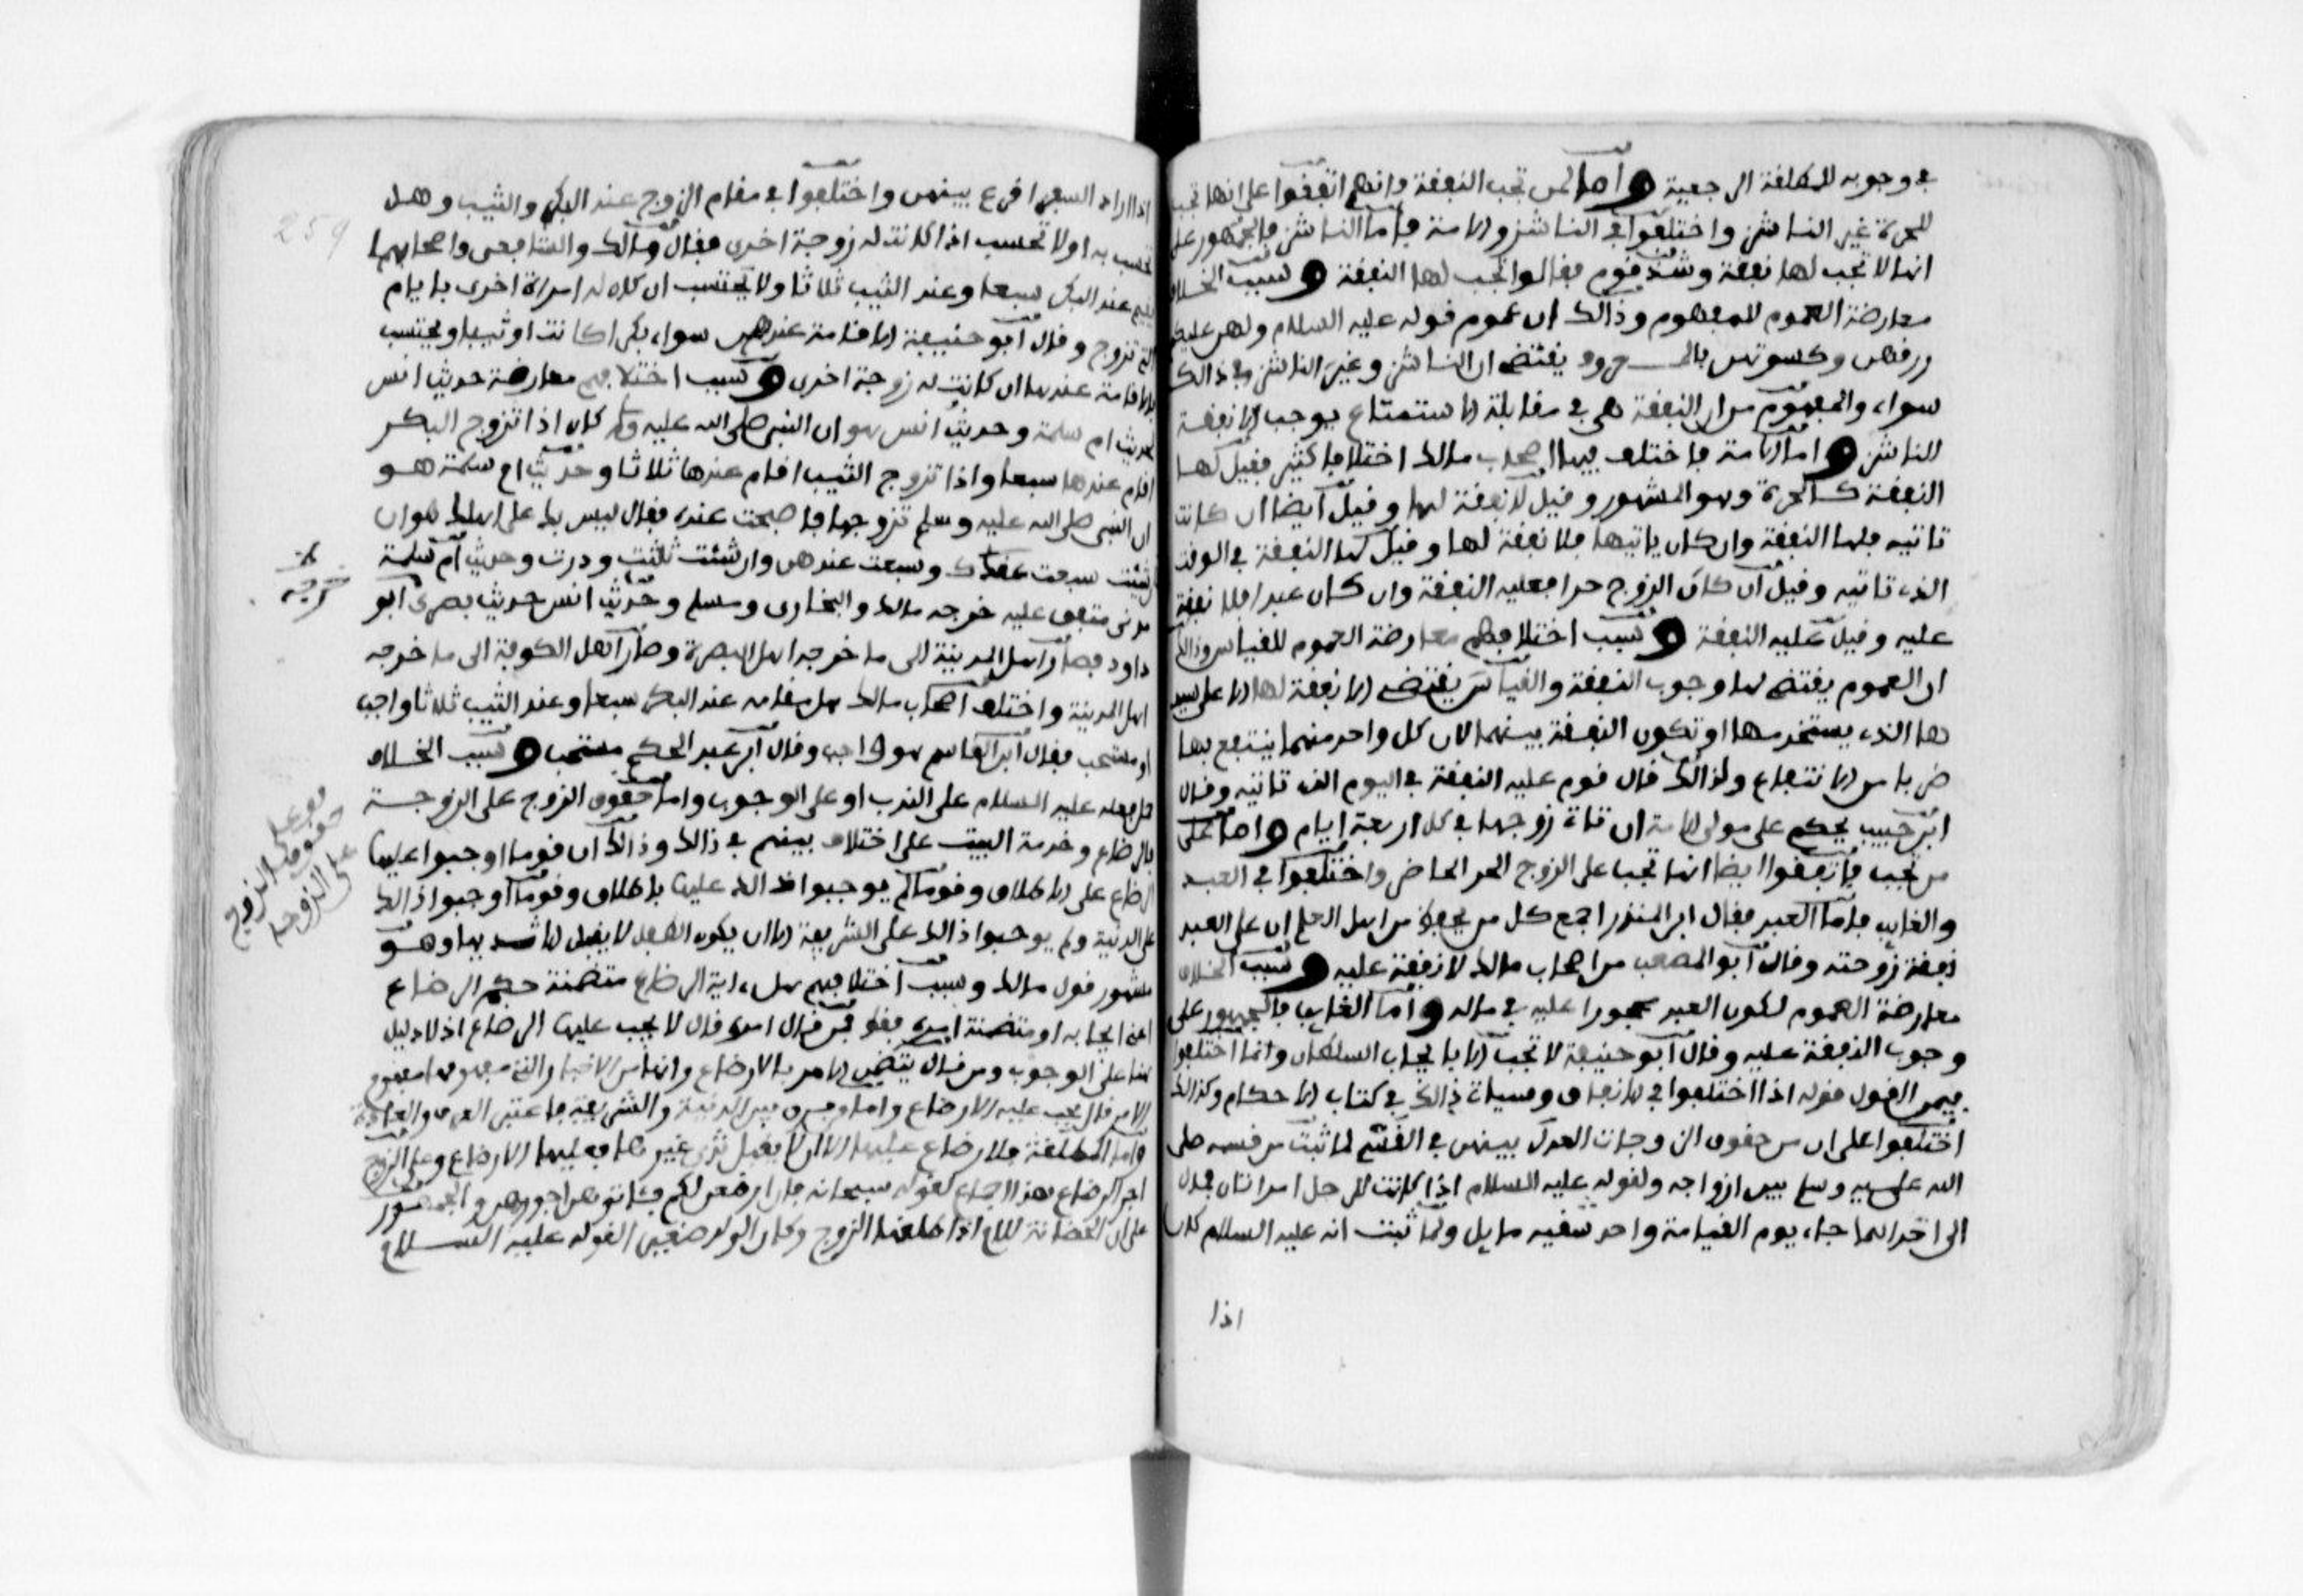 في وجوبه للمطلقة الرجعية واما لمن تجب النفقة فانهم اتفقوا على انها تجب
للحرة غير الناشز واختلفوا في الناشز والامة فاما الناشز فالجمهور على
انها لا تجب لها نفقة وشذ قوم فقالوا تجب لها النفقة وسبب الخلاف
معارضة العموم للمفهوم وذالك ان عموم قوله عليه السلام ولهن عليكم
رزقهن وكسوتهن بالمعروف يقتضي ان الناشز وغير الناشز في ذالك
سواء والمفهوم من ان النفقة هي في مقابلة الاستمتاع يوجب الا نفقة
للناشز واما الامة فاختلف فيها اصحاب مالك اختلافا كثيرا فقيل لها
النفقة كالحرة وهو المشهور وقيل لا نفقة لها وقيل ايضا ان كانت
تاتيه فلها النفقة وان كان ياتيها فلا نفقة لها وقيل لها النفقة في الوقت
الذي تاتيه وقيل ان كان الزوج حرا فعليه النفقة وان كان عبدا فلا نفقة
عليه وقيل عليه النفقة وسبب اختلافهم معارضة العموم للقياس وذالك
ان العموم يقتضي لها وجوب النفقة والقياس يقتضي الا نفقة لها الا على سيد
ها الذي يستخدمها او تكون النفقة بينهما لان كل واحد منهما ينتفع بها
ضربا من الانتفاع ولذالك قال قوم عليه النفقة في اليوم الذي تاتيه وقال
ابن حبيب يحكم على مولى الامة ان تاته زوجها في كل اربعة ايام واما على
من تجب فاتفقوا ايضا انها تجب على الزوج الحر الحاضر واختلفوا في العبد
والغايب فاما العبد فقال ابن المنذر اجمع كل من يحفظ من اهل العلم ان على العبد
نفقة زوجته وقال ابو المصعب من اصحاب مالك لا نفقة عليه وسبب الخلاف
معارضة العموم لكون العبد محجورا عليه في ماله واما الغايب فالجمهور على
وجوب النفقة عليه وقال ابو حنيفة لا تجب الا بايجاب السلطان وانما اختلفوا
فيمن القول قوله اذا اختلفوا في الانفاق وسياتي ذالك في كتاب الاحكام وكذالك
اختلفوا على ان من حقوق الزوجات العدل بينهن في القسم لما ثبت من قسمه صلى
الله عليه وسلم بين ازواجه ولقوله عليه السلام اذا كانت للرجل امراتان فمال
الى احداهما جاء يوم القيامة واحد شقيه مايل ولما ثبت انه عليه السلام كان
اذا
259
اذا اراد السفر اقرع بينهن واختلفوا في مقام الزوج عند البكر والثيب وهل
تحتسب به او لا تحتسب اذا كانت له زوجة اخرى فقال مالك والشافعي واصحابهما
يقيم عند البكر سبعا وعند الثيب ثلاثا ولا يحتسب ان كان له امراة اخرى بايام
التي تزوج وقال ابو حنيفة الاقامة عندهن سواء بكرا كانت او ثيبا ويحتسب
بالاقامة عندها ان كانت له زوجة اخرى وسبب اختلافهم معارضة حديث انس
لحديث ام سلمة وحديث انس هو ان النبي صلى الله عليه وسلم كان اذا تزوج البكر
اقام عندها سبعا واذا تزوج الثيب اقام عندها ثلاثا وحديث ام سلمة هو
ان النبي صلى الله عليه وسلم تزوجها فاصبحت عنده فقال ليس بك على اهلك هوان
ان شئت سبعت عندك وسبعت عندهن وان شئت ثلثت ودرت وحديث ام سلمة
مدني متفق عليه خرجه مالك والبخاري ومسلم وحديث انس حديث بصري ابو
خرجه
داود فصار اهل المدينة الى ما خرجه اهل البصرة وصار اهل الكوفة الى ما خرجه
اهل المدينة واختلف اصحاب مالك هل مقامه عند البكر سبعا وعند الثيب ثلاثا واجب
او مستحب فقال ابن القاسم هو واجب وقال ابن عبد الحكم مستحب وسبب الخلاف
حمل فعله عليه السلام على الندب او على الوجوب واما حقوق الزوج على الزوجة
حقوق الزوج
على الزوجة
بالرضاع وخدمة البيت على اختلاف بينهم في ذالك وذالك ان قوما اوجبوا عليها
الرضاع على الاطلاق وقوما لم يوجبوا ذالك عليها باطلاق وقوما اوجبوا ذالك
على الدنية ولم يوجبوا ذالك على الشريفة الا ان يكون الطفل لا يقبل الا ثديها وهو
مشهور قول مالك وسبب اختلافهم هل ءاية الرضاع متضمنة حكم الرضاع
اعني ايجابه او متضمنة امره فقط فمن قال امره قال لا يجب عليها الرضاع اذ لا دليل
هنا على الوجوب ومن قال يتضمن الامر بالارضاع وانها من الاخبار التي مفهومها مفهوم
الامر قال يجب عليها الارضاع واما من فرق بين الدنية والشريفة فاعتبر العرف والعادة
واما المطلقة فلا رضاع عليها الا ان لا يقبل ثدي غيرها فعليها الارضاع وعلى الزوج
اجر الرضاع هذا اجماع لقوله سبحانه فان ارضعن لكم فئاتوهن اجورهن والجمهور
على ان الحضانة للام اذا طلقها الزوج وكان الولد صغيرا لقوله عليه السلام